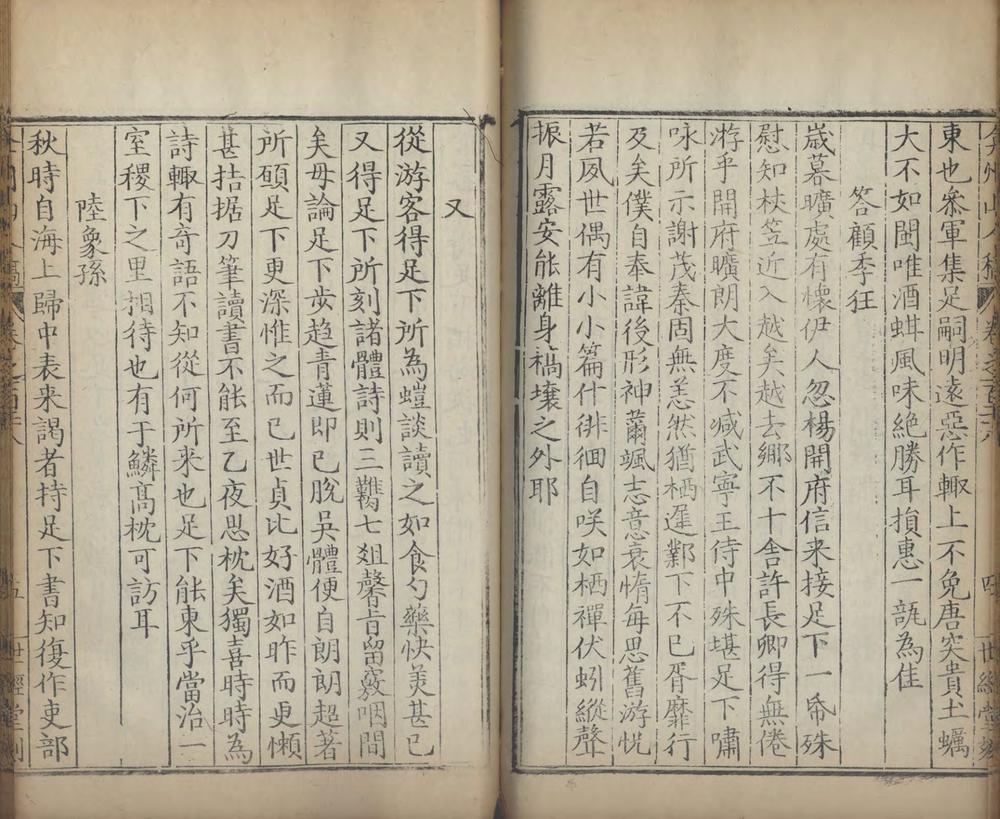 弇州山人稿 卷之百二十六 四 世經堂刻
東也叅軍集足嗣明遠惡作輙上不免唐突貴土蠣
大不如閩唯酒蜞風味絶勝耳損惠一瓻為佳
答顧季狂
歲暮曠處有懷伊人忽楊開府信来接足下一帋殊
慰知杖笠近入越矣越去鄉不十舎許長卿得無倦
游乎開府曠朗大度不减武寧王侍中殊堪足下嘯
咏所示謝茂秦固無恙然猶栖遲鄴下不已胥靡行
及矣僕自奉諱後形神薾颯志意衰惰每思舊游恍
若夙世偶有小小篇什徘徊自咲如栖禪伏蚓縱聲
振月露安能離身槁壤之外耶
又
從游客得足下所為螘談讀之如食勺藥快美甚已
又得足下所刻諸體詩則三臡七爼馨旨留竅咽間
矣毋論足下步趋青蓮即已脫吳體便自朗朗超著
所頋足下更深惟之而已世貞比好酒如昨而更懶
甚拮据刀筆讀書不能至乙夜思枕矣獨喜時時為
詩輙有奇語不知從何所来也足下能東乎當治一
室稷下之里相待也有于鱗髙枕可訪耳
陸象孫
秋時自海上歸中表来謁者持足下書知復作吏部
五 世經堂刻